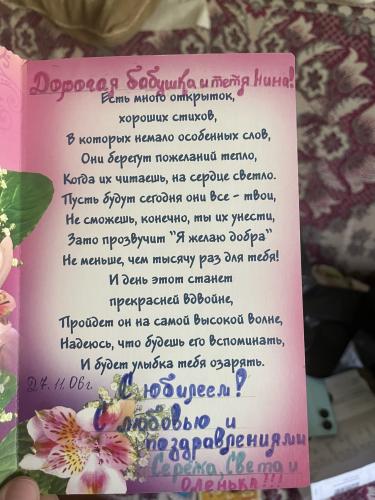 Дорогая бабушка и тетя Нина!
Есть много открыток,
хороших стихов,
В которых немало особенных слов,
Они берегут пожеланий тепло,
Когда их читаешь, на сердце светло.
Пусть будут сегодня они все - твои,
Не сможешь, конечно, ты их унести,
Зато прозвучит "Я желаю добра"
Не меньше, чем тысячу раз для тебя!
И день этот станет
прекрасней вдвойне,
Пройдет он на самой высокой волне,
Надеюсь, что будешь его вспоминать,
И будет улыбка тебя озарять.
27.11.06г.
С юбилеем!
С любовью и
поздравлениями
Сережа, Света и
Оленька!!!